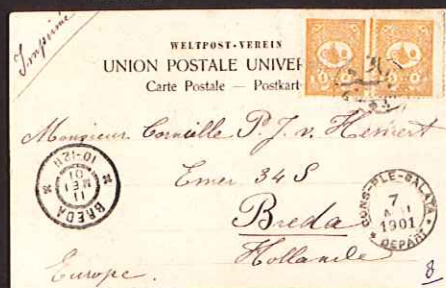 Imprimé
WELTPOST-VEREIN
UNION POSTALE UNIVER
Carte Postale — Postkart
Monsieur Corneille P. J. v. Hemert
Emer 34 S
Breda
Hollande
Europe.
BREDA
11
MEI
01
10-12V
CONS-PLE-GALATA
7
1901
DEPART
8